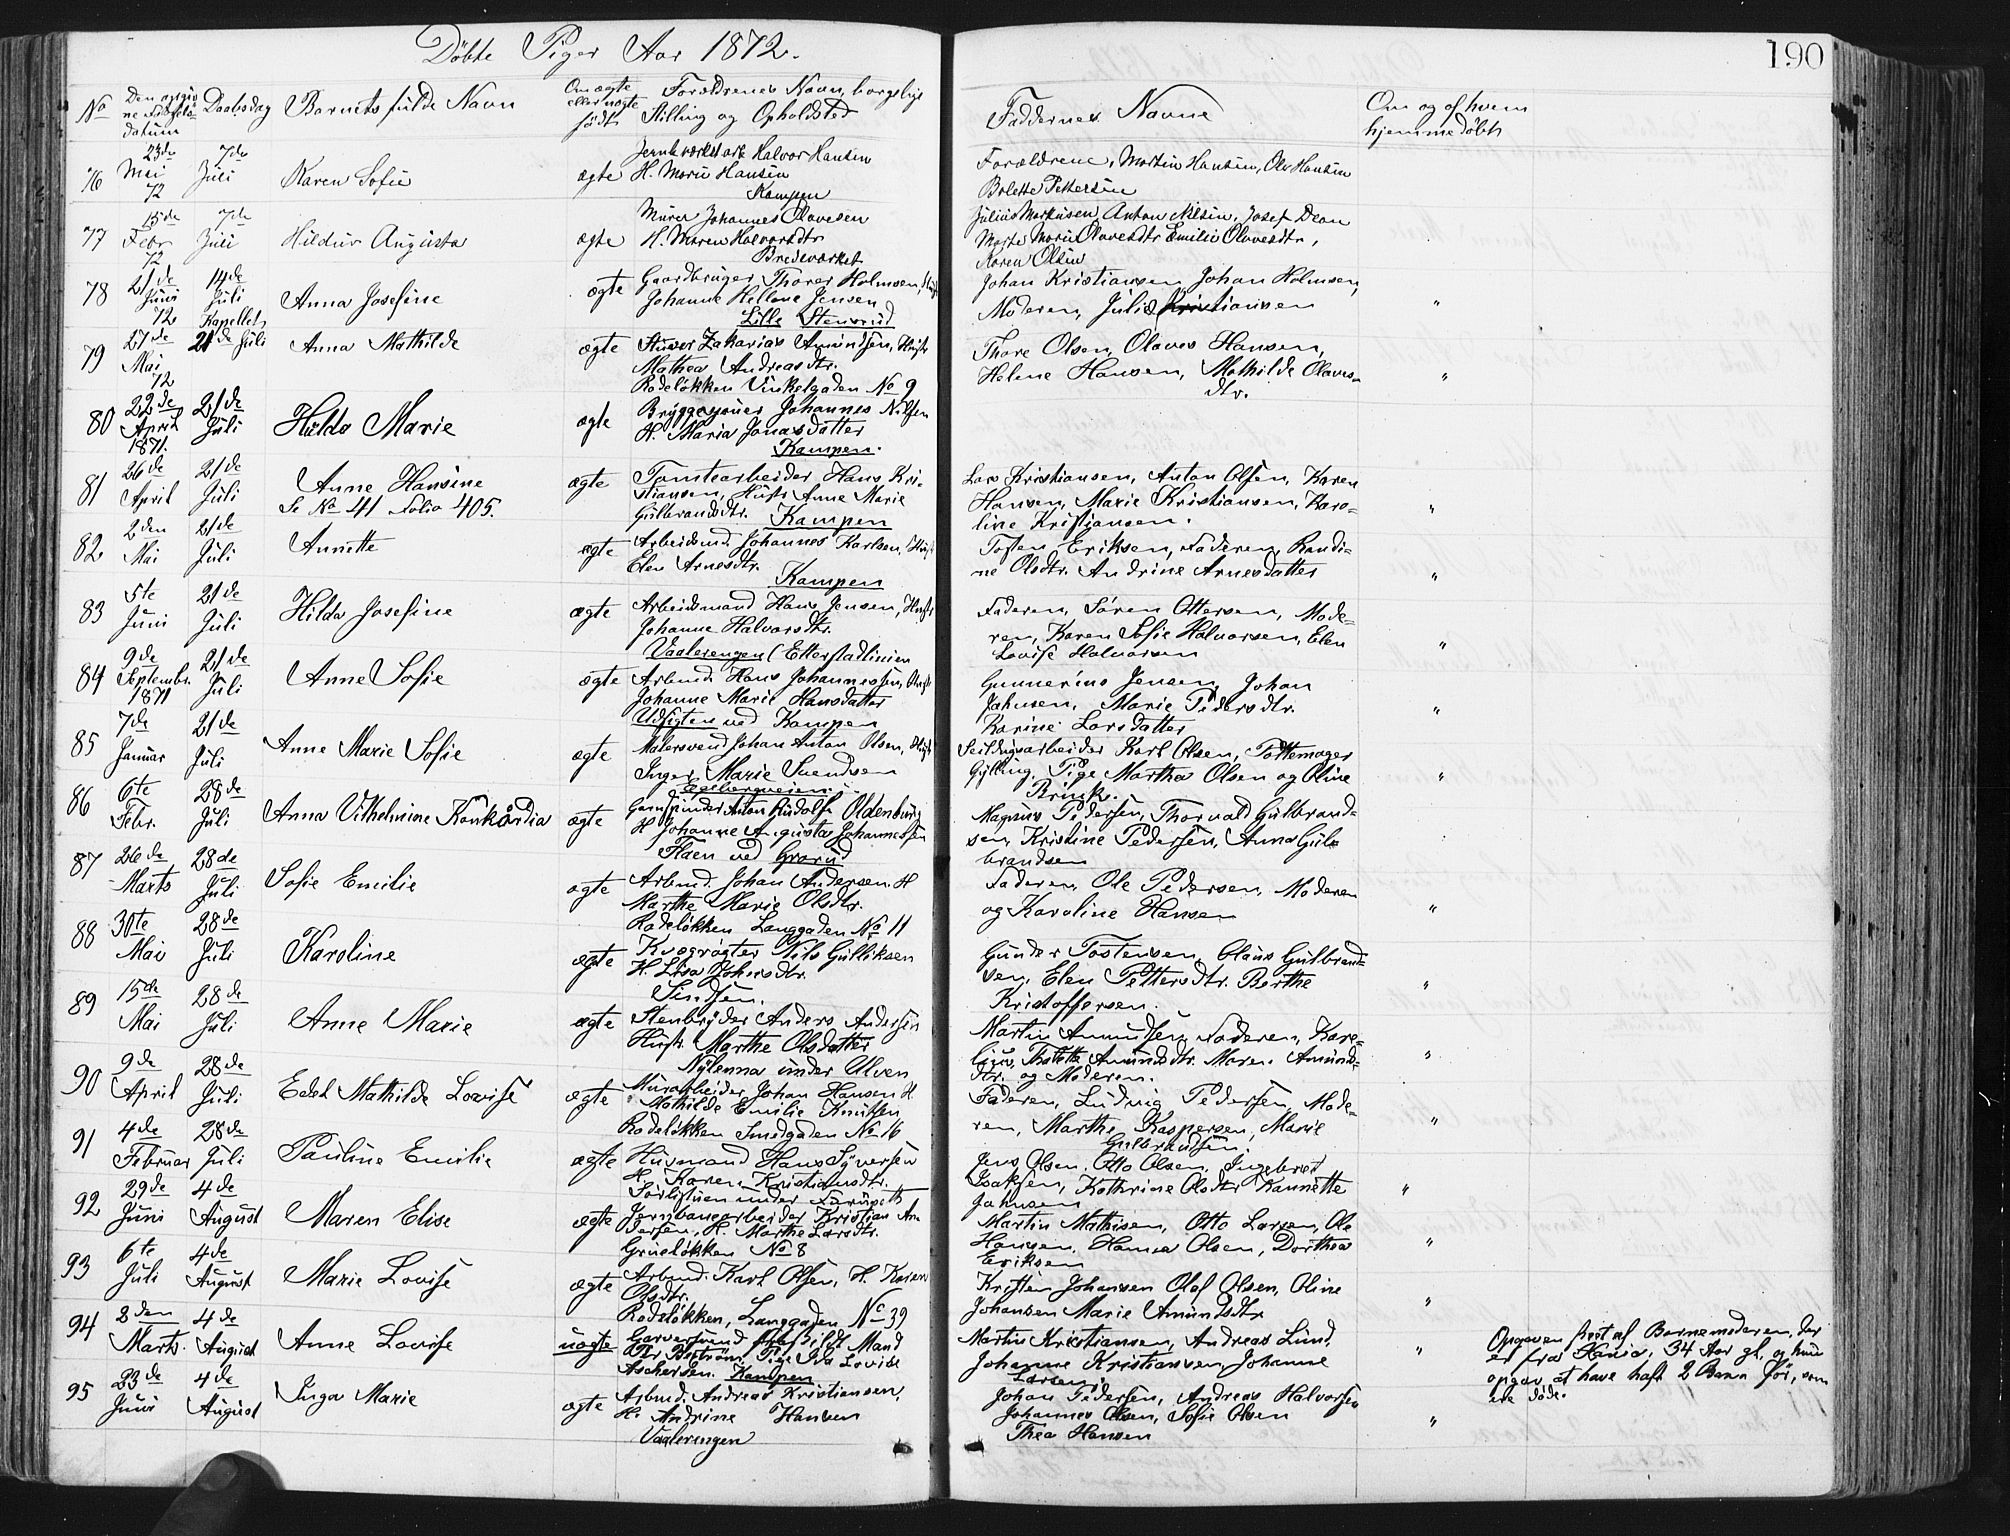 Døbte Piger Aar 1872.
190
No
Den opgivne Fødselsdatum
Daabsdag
Barnets fulde Navn
Om ægte eller uægte født
Forældrenes Navn, borgelige Stilling og Opholdsted
Faddernes Navne
Om og af hvem hjemmedøbt
76 23de Mai 72 7de Juli Karen Sofie ægte
Halvor Hansen
H. Marie Hansen
Kampen
Forældrene, Martin Hansen, Ole Hansen
Bolette Pettersen
77 15de Febr 72 7de Juli Hildur Augusta ægte
Murer Johannes Olavesen
H. Maren Halvorsdtr
Julius Markusen, Anton Nilsen, Josef Dean
Marte Marie Olavesdtr Emilie Olavesdtr,
Karen Olsen
78 21de Juni 72 14de Juli Kapellet Anna Josefine ægte
Gaardbruger Thorer Holmsen, Hustr
Johanne Hellene Jensen
Lille Stensrud
Johan Kristiansen Johan Holmsen,
Moderen, Julie Kristiansen "
79 27de Mai 72 21de Juli Anna Mathilde ægte
Stuver Zakarias Amundsen, Hustr
Mathea Andreasdtr.
Rodeløkken Vinkelgaden No 9
Thore Olsen, Olaves Hansen,
Helene Hansen, Mathilde Olaves-
dtr. "
80 22de April 1871. 21de Juli Hilda Marie ægte
Bryggesjouer Johannes Nilsen
H. Maria Jonasdatter
Kampen.
81 26de April 21de Juli Anne Hansine ægte
Se No 41 Folio 405.
Tomtearbeider Hans Kri-
stiansen, Hustr Anne Marie
Gulbrandsdtr. Kampen
Lars Kristiansen, Anton Olsen, Karen
Hansen, Marie Kristiansen, Karo-
line Kristiansen. "
82 2den Mai 21de Juli Annette ægte
Arbeidsmd. Johannes Karlsen, Hustr
Elen Arnesdtr.
Kampen
Tosten Eriksen, Faderen, Randi-
ne Olsdtr. Andrine Arnesdatter "
83 5te Juni 21de Juli Hilda Josefine ægte
Arbeidsmand Hans Jensen, Hustr
Johanne Halvorsdtr.
Vaalerengen (Etterstadlinien
Faderen, Søren Ottersen, Mode-
ren, Karen Sofie Halvorsen, Elen
Lovise Halvorsen "
84 9de Septembr. 1871 21de Juli Anne Sofie ægte
Arbmd. Hans Johannessen, Hustr
Johanne Marie Hansdatter
Udsigten ved Kampen
Gunnerius Jensen, Johan
Jahnsen, Marie Pedersdtr.
Karine Larsdatter "
85 7de Januar 21de Juli Anne Marie Sofie ægte
Malersvend Johan Anton Olsen, Hustr
Inger Marie Svendsen
Egebergveien.
Seildugsarbeider Karl Olsen, Pottemager
Gylling, Pige Marthea Olsen og Oline
Brink. "
86 6te Febr. 28de Juli Anna Vilhelmine Konkordia ægte
Garnspinder Anton Rudolf Oldenburg
H Johanne Augusta Johannessen
Flaen ved Grorud
Magnus Pedersen, Thorvald Gulbrand-
sen, Kristine Pedersen, Anna Gul-
brandsen
87 26de Marts 28de Juli Sofie Emilie ægte
Arbmd. Johan Andersen. H
Marthe Marie Olsdtr.
Rodeløkken Langgaden No 11
Faderen, Ole Pedersen, Moderen
og Karoline Hansen "
88 30te Mai 28de Juli Karoline ægte
Kvægrøgter Nils Gulliksen
H. Lisa Johnsdtr.
Sinsen.
Gunder Tostensen, Olaus Gulbrand-
sen, Elen Pettersdtr. Berthe
Kristoffersen. "
89 15de Mai 28de Juli Anne Marie ægte
Stenbryder Anders Andersen
Hustr. Marthe Olsdatter
Nylenna under Ulven
Martin Amundsen, Faderen, Kare-
Amundsdtr. Maren Amund-
dtr. og Moderen. "
90 9de April 28de Juli Edel Mathilde Lovise ægte
Murarbeider Johan Hansen H
Mathilde Emilie Knutsen
Rodeløkken Smedgaden No 16
Faderen, Ludvig Pedersen, Mode-
ren, Marthe Kaspersen, Marie
Gulbrandsen. "
91 4de Februar 28de Juli Pauline Emilie ægte
Husmand Hans Syversen
H. Karen Kristiansdtr.
Jens Olsen. Otto Olsen. Ingebret
Isaksen, Kathrine Olsdtr Hannette
Jahnsen "
92 29de Juni 4de August Maren Elise ægte
Jernbanearbeider Kristian An-
dersen, H. Marthe Larsdtr.
Grueløkken No 8
Martin Mathisen, Otto Larsen, Ole
Hansen. Hanna Olsen, Dorthea
Eriksen "
93 6te Juli 4de August Marie Lovise ægte
Arbmd. Karl Olsen, H. Karen
Olsdtr.
Rodeløkken, Langgaden No 39
Kristen Johansen Olof Olsen, Oline
Johansen Marie Amundsdtr "
94 2den Marts. 4de August Anne Lovise uægte
Garversvend
Pige Ida Lovise
Aschersen. Kampen
Martin Kristiansen, Andreas Lund,
Johanne Kristiansen, Johanne
Larsen. "
Opgaven skeet af Barnemoderen, der
er fra 34 Aar gl, og hun
opgav at have haft 2 Børn før, som
ere døde.
95 23de Juni 4de August Inga Marie ægte
Arbmd. Andreas Kristiansen,
H. Andrine Hansen
Vaalerengen
Johan Pedersen, Andreas Halvorsen
Johannes Olsen, Sofie Olsen
Thea Hansen "